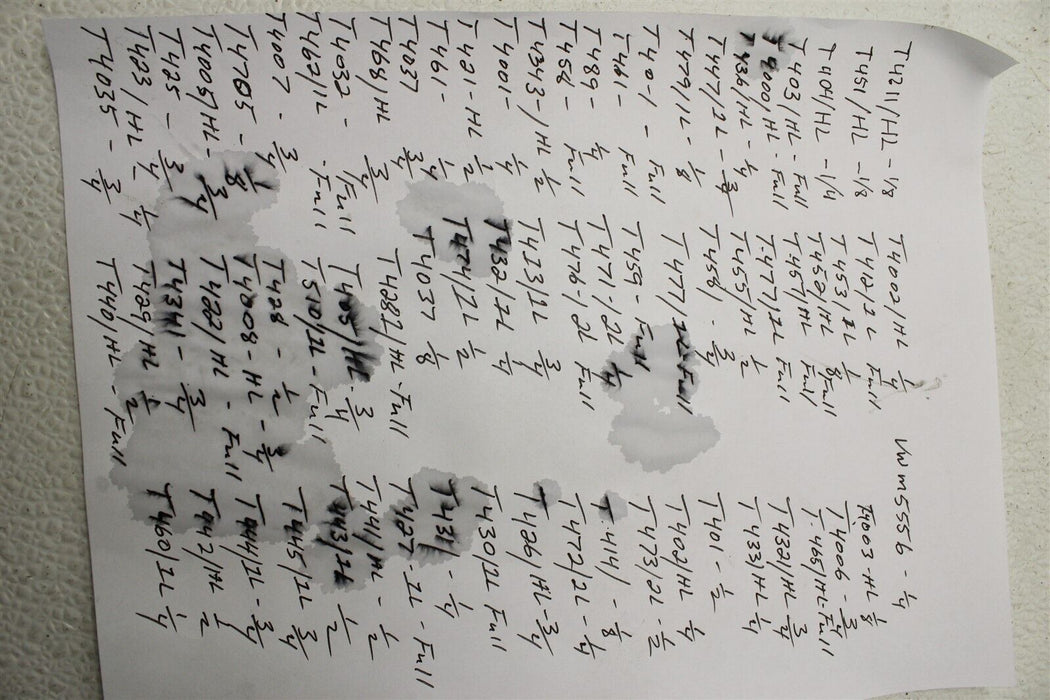 T4211/HL - 1/8
T451/HL - 1/8
T404/HL - 1/4
T403/HL - Full
T4000/HL - Full
T436/HL - 1/4
T447/2L - 3/4
T479/1L - 1/8
T401-1 - Full
T461 - Full
T489 - 1/4
T456 - Full
T4343-/HL 1/2
T4001 - 1/4
T421 - HL 1/2
T461 - 1/4
T4037 3/4
T468/HL 3/4
T4032 - Full
T462/1L - Full
T4007 - 3/4
T4705 - 1/8
T4005/HL - 3/4
T425 - 3/4
T423/HL - 1/4
T4035 - 3/4
T4002/HL 1/4
T412/2L Full
T453/2L 1/2
T452/HL Full
T457/HL Full
T477/2L Full
T455/HL 1/2
T458 - 3/4
T477/2L - Full
T459 - Full
T471-/2L 1/4
T476-/2L Full
T413/2L 3/4
T432/2L 1/4
T474/2L 1/2
T4037 1/8
T4282/HL - Full
T405/HL - 3/4
T510/2L - Full
T428 - 1/2
T4008 - HL - 3/4
T422/HL - Full
T434 - 3/4
T429/HL 1/2
T440/HL - Full
VWM5556 - 1/4
T4003 - HL 1/8
T4006 - 3/4
T465/HL - Full
T432/HL - 3/4
T433/HL 1/4
T401 - 1/2
T402/HL 1/4
T473/2L - 1/2
T414/ - 1/8
T472/2L - 1/4
T426/HL - 3/4
T430/2L Full
T431 - 1/4
T427 - 2L - Full
T441/HL - 1/2
T443/2L 1/2
T445/2L 3/4
T444/2L - 3/4
T442/HL 1/2
T460/2L 1/4